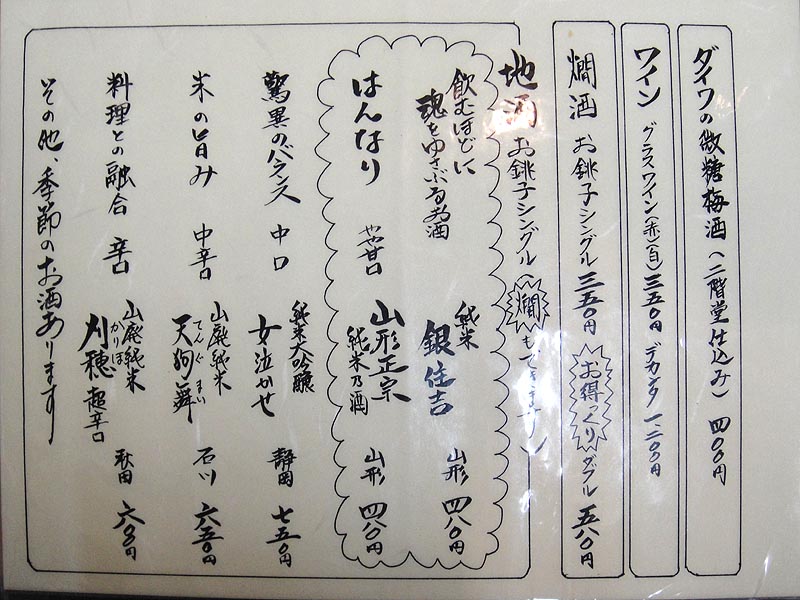 ダイワの微糖梅酒（二階堂仕込み） 四〇〇円
ワイン グラスワイン（赤）（白） 三五〇円 デカンタ 一、二〇〇円
燗酒 お銚子シングル 三五〇円 お得っくり ダブル 五八〇円
地酒 お銚子シングル（燗もできます）
飲むほどに
魂をゆさぶるお酒
純米
銀住吉 山形 四八〇円
はんなり やや甘口
山形正宗
純米乃酒 山形 四八〇円
驚異のバランス 中口
純米大吟醸
女泣かせ 静岡 七五〇円
米の旨み 中辛口
山廃純米
天狗舞 てんぐまい 石川 六五〇円
料理との融合 辛口
山廃純米
刈穂 かりほ 超辛口 秋田 六〇〇円
その他、季節のお酒あります